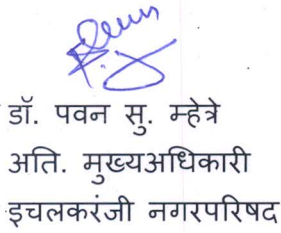 डॉ. पवन सु. म्हेत्रे
अति. मुख्यअधिकारी
इचलकरंजी नगरपरिषद